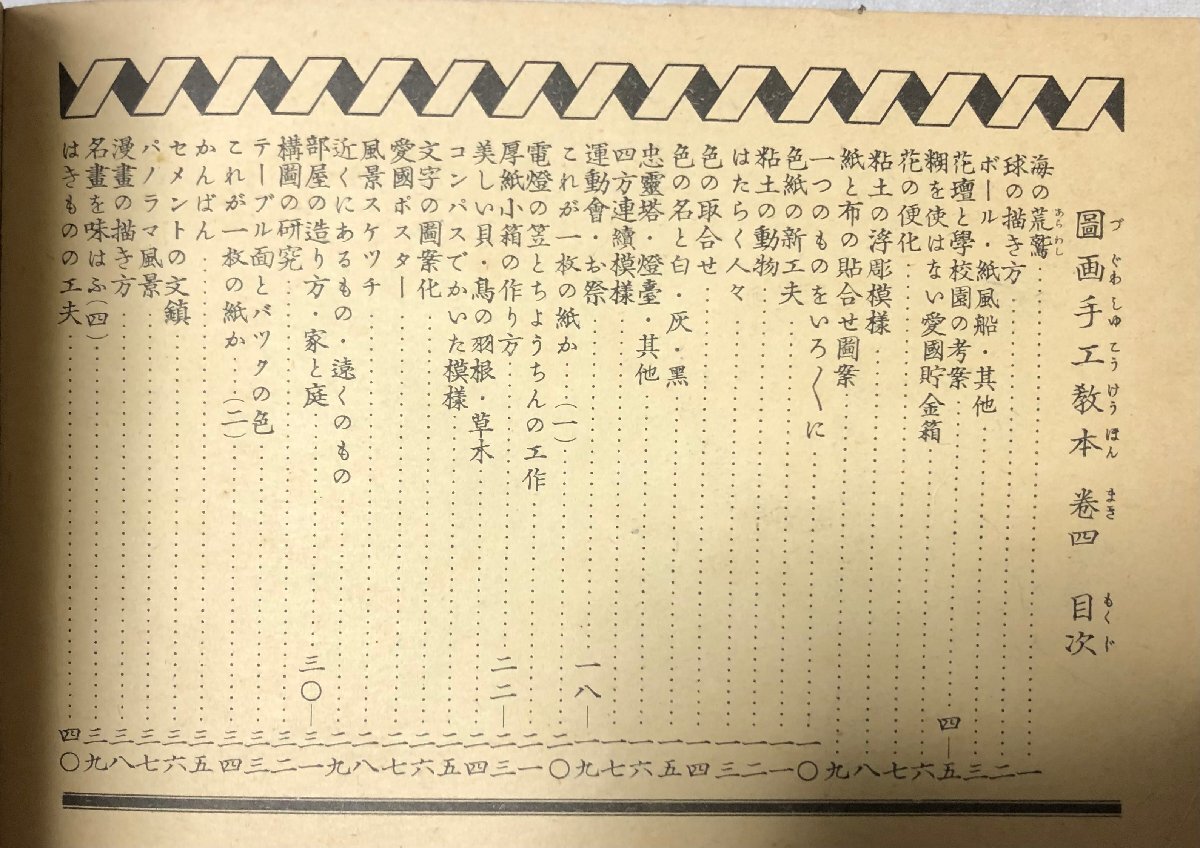 圖画手工教本 巻四 目次
づぐわしゆこうけうほん まき もくじ
海の荒鷲……一
あらわし
球の描き方……二
ボール・紙風船・其他……三
花壇と學校園の考案……四—五
糊を使はない愛國貯金箱……六
花の便化……七
粘土の浮彫模様……八
紙と布の貼合せ圖案……九
一つのものをいろ〳〵に……一〇
色紙の新工夫……一一
粘土の動物……一二
はたらく人々……一三
色の取合せ……一四
色の名と白・灰・黑……一五
忠靈塔・燈臺・其他……一六
四方連續模様……一七
運動會・お祭……一八—一九
これが一枚の紙か(一)……二〇
電燈の笠とちようちんの工作……二一
厚紙小箱の作り方……二二—二三
美しい貝・鳥の羽根・草木……二四
コンパスでかいた模様……二五
文字の圖案化……二六
愛國ポスター……二七
風景スケツチ……二八
近くにあるもの・遠くのもの……二九
部屋の造り方・家と庭……三〇—三一
構圖の研究……三二
テーブル面とバツクの色……三三
これが一枚の紙か(二)……三四
かんばん……三五
セメントの文鎮……三六
パノラマ風景……三七
漫畫の描き方……三八
名畫を味はふ(四)……三九
はきものの工夫……四〇